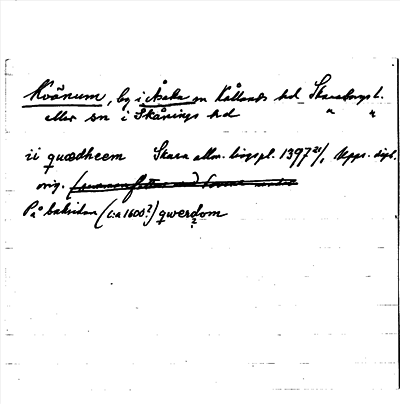 Kvänum, by i Åsaka sn Kållands hd Skaraborgs l.
eller sn i Skånings hd " "
ii quædheem Skara allm. bigspl. 1397 21/, Upps. dipl.
orig.
På baksidan (c:a 1600?) qwerdom
?